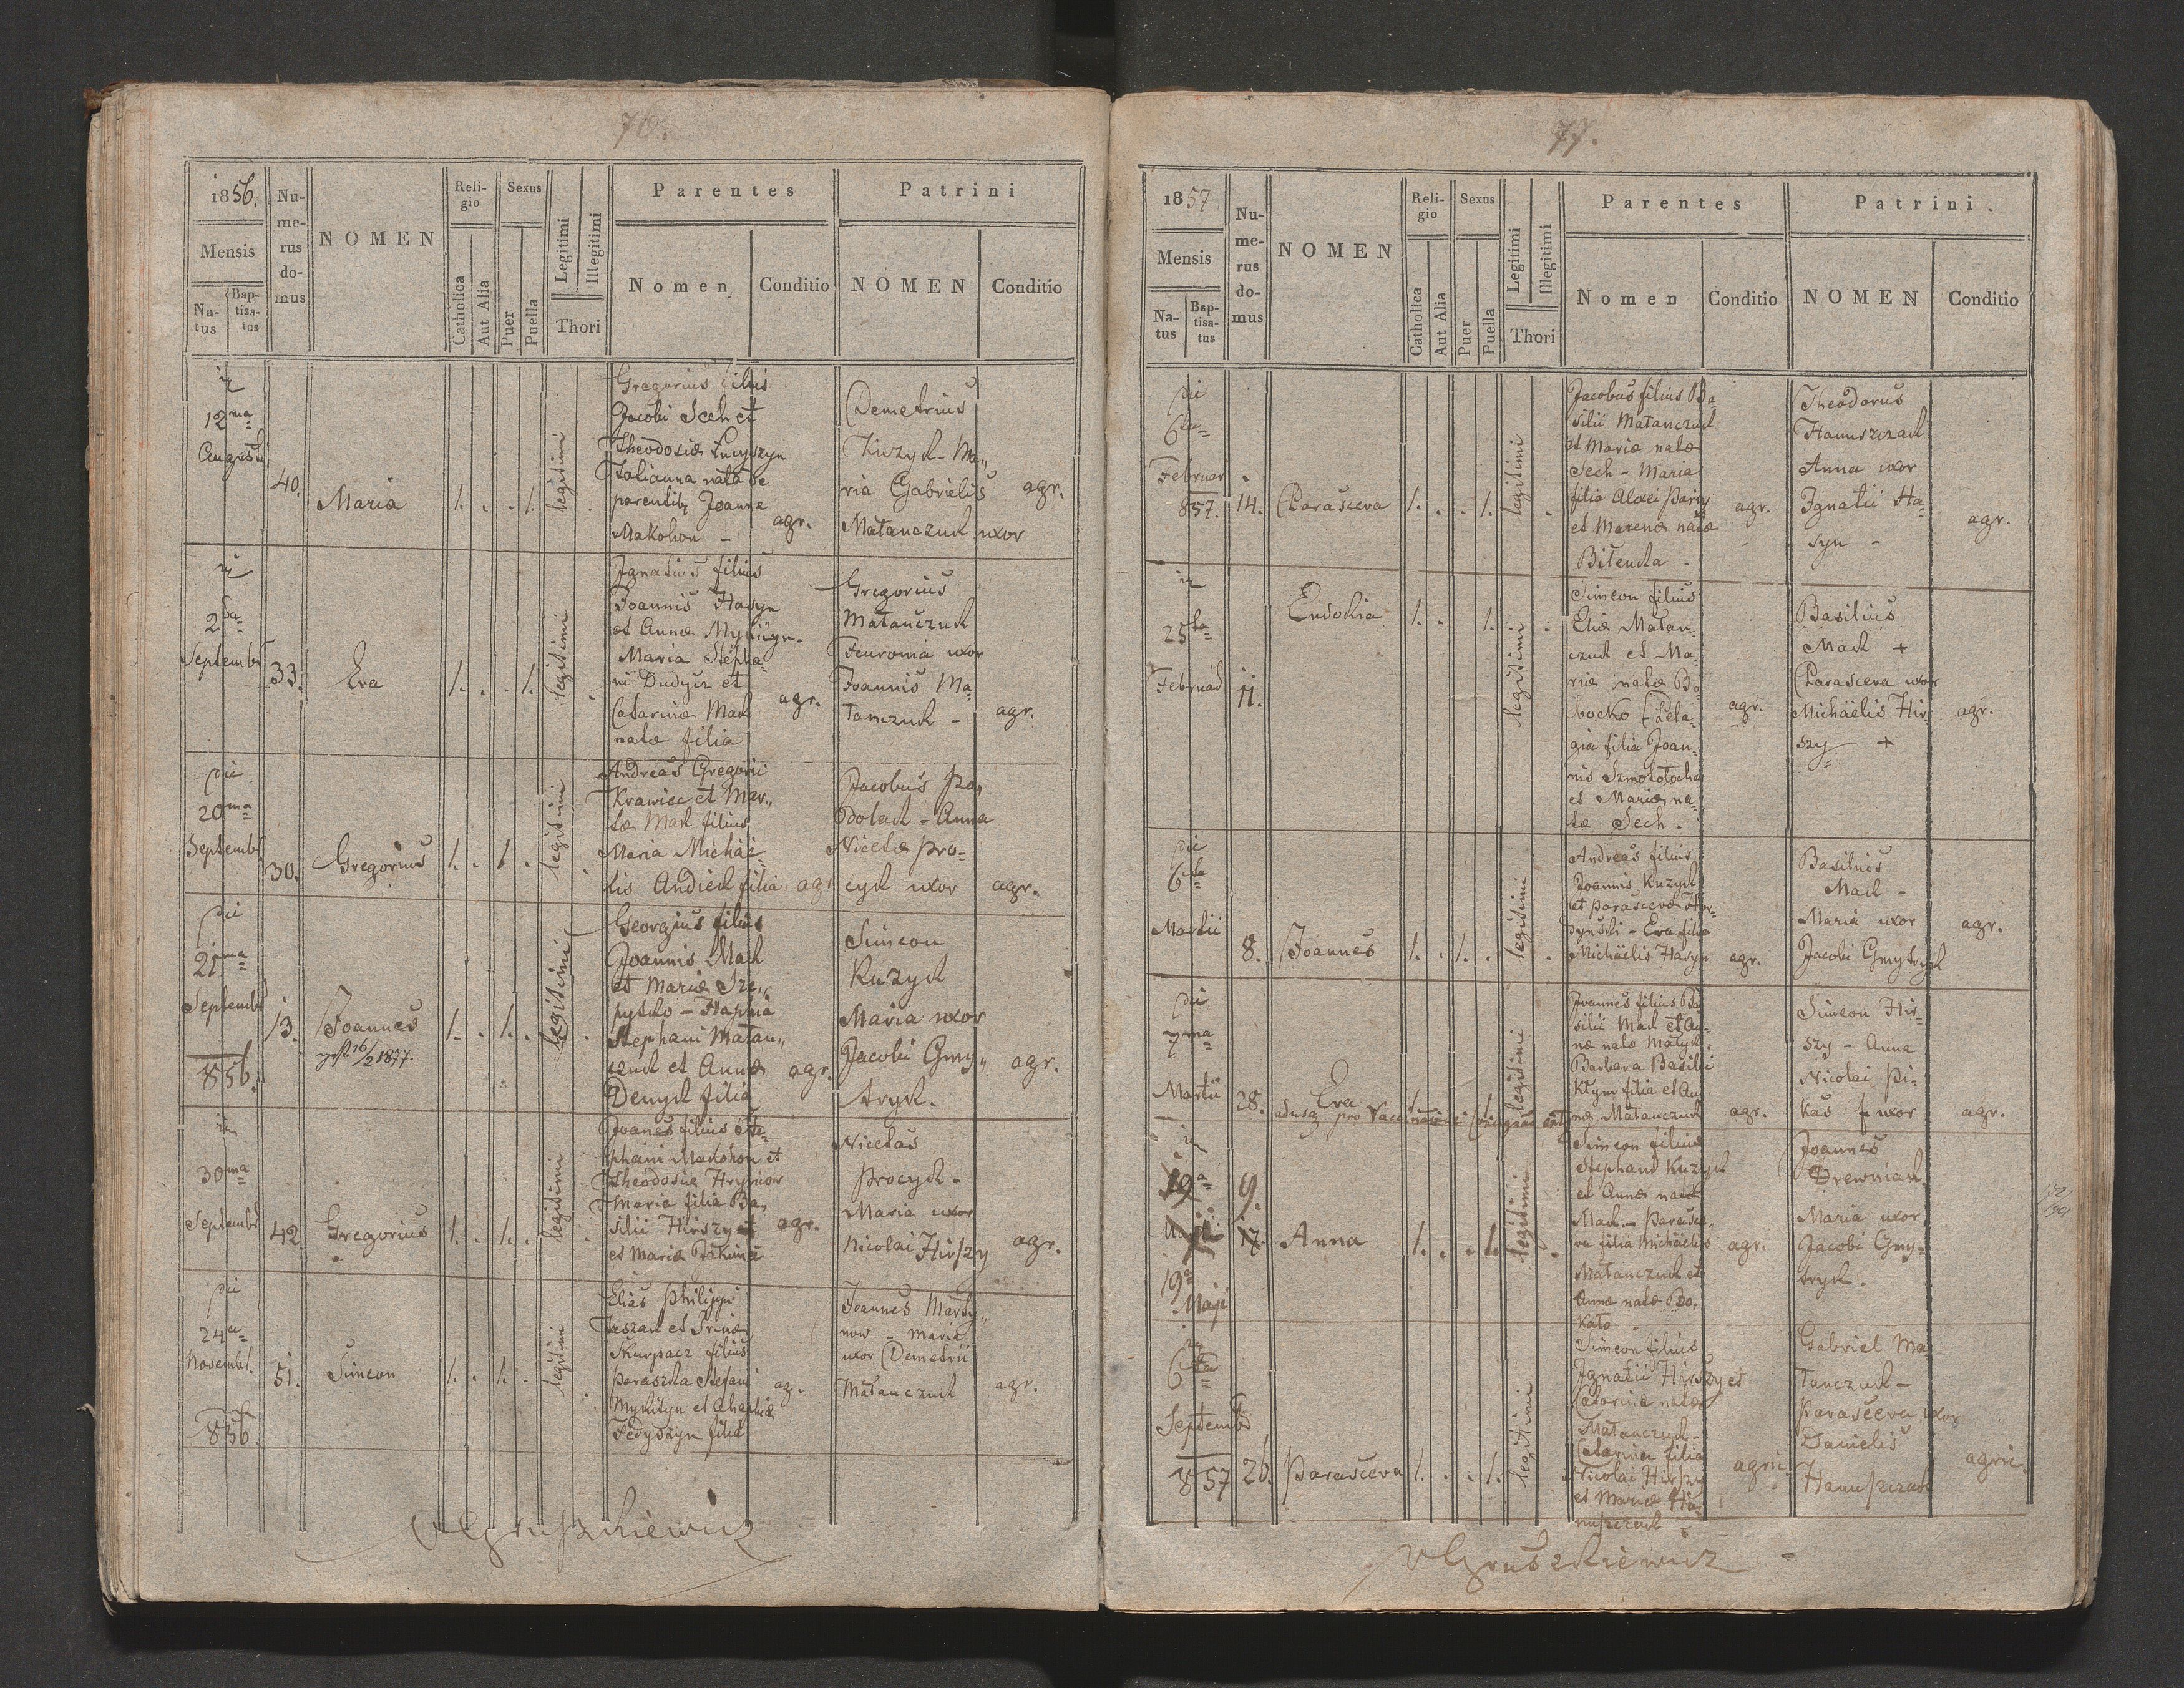 76.
1856.
Mensis
Na-
tus
Bap-
tisa-
tus
Nu-
me-
rus
do-
mus
NOMEN
Reli-
gio
Catholica
Aut Alia
Sexus
Puer
Puella
Legitimi
Illegitimi
Thori
Parentes
Nomen
Conditio
Patrini
NOMEN
Conditio
12ma
Augusti
40.
Maria
1. . . 1.
legitimi
Gregorius filius
Jacobi Sech et
Theodosiæ Łucyszyn
Julianna nata de
parentibq Joanne
Makohon -
agr.
Demetrius
Kuzyk - Ma„
ria Gabrielis
Matanczuk uxor
agr.
2da
Septembr
33.
Eva
1. . . 1.
legitimi
Ignatius filius
Joannis Hasyn
et Annæ Mykityn.
Maria Stepha-
ni Dudycz et
Catarinæ Mack
natæ filia
agr.
Gregorius
Matanczuk
Feuronia uxor
Joannis Ma-
tanczuk -
agr.
die
20ma
Septembr
30.
Gregorius
1. . 1. .
legitimi
Andreas Gregorii
Krawiec et Mar„
tæ Mak filius
Maria Michae-
lis Andiek filia
agr
Jacobus Po„
dolak - Anna
Nicetæ Pro-
cyk uxor
agr.
die
21ma
Septembr
856.
13.
Joannes
16/2 1877.
1. . 1. .
legitimi
Georgius filius
Joannis Mak
et Mariæ Sze„
pytko - Haphia
Stephani Matan„
czuk et Annæ
Denyck filia
agr.
Simeon
Kuzyk
Maria uxor
Jacobi Gmy„
tryk.
agr.
30ma
Septembr
42.
Gregorius
1. . 1. .
legitimi
Joanes filius Ste-
phani Makohon et
Theodosiæ Hrynior
Maria filia Ba„
silii Hirszy et
et Mariæ Jakimei
agr.
Nicetas
Procyk -
Maria uxor
Nicolai Hirszy
agr.
die
24a
Novembr.
856.
51.
Simeon
1. . 1. .
legitimi
Elias Philippi
Juszak et Irinæ
Skurpacz filius
Paraszka Stefani
Mykityn et Ahaphiæ
Fedyszyn filia
ag.
Joannes Marty„
now - Maria
uxor Demetrii
Matanczuk
agr.
VGruszkiewicz
77.
1857
Mensis
Na-
tus
Bap-
tisa-
tus
Nu-
me-
rus
do-
mus
NOMEN
Reli-
gio
Catholica
Aut Alia
Sexus
Puer
Puella
Legitimi
Illegitimi
Thori
Parentes
Nomen
Conditio
Patrini.
NOMEN
Conditio
die
6ta
Februar
857.
14.
Parasceva
1. . . 1.
legitimi
Jacobus filius Ba
silii Matanczuk
et Mariæ natæ
Sech - Maria
filia Alexi Pariy
et Marenæ natæ
Bitenka -
agr.
Theodorus
Hanuszczak
Anna uxor
Ignatii Ha-
syn -
agr.
25ta
Februar
11.
Eudokia
1. . 1.
legitimi
Simeon filius
Eliæ Matan-
czuk et Ma-
riæ natæ Bo-
bocko - Pela-
gia filia Joan-
nis Szmokotocha
et Mariæ na-
tæ Sech -
agr.
Basilius
Mack +
Parasceva uxor
Michaelis Hir-
szy +
agr.
die
6ta
Martii
8.
Joannes
1. . 1. .
legitimi
Andreas filius
Joannis Kuzyk
et Parascevæ Hor-
dynski - Eva filia
Michaelis Hasyn
agr.
Basilius
Mack -
Maria uxor
Jacobi Gmytryk
agr.
die
7ma
Martii
28.
Eva
legitimi
Joannes filius Ba
silii Mak et An-
næ natæ Matyk -
Barbara Basilii
Klym filia et An-
næ Matanczuk
agr.
Simeon Hir-
szy - Anna
Nicolai Pi-
kas + uxor
agr.
19a
Maji
9.
17.
19a
Maji
Anna
1. . . 1.
legitimi
Simeon filius
Stephani Kuzyk
et Annæ natæ
Mack - Parasce-
va filia Michaelis
Matanczuk et
Annæ natæ Bo-
kato
agr.
Joannes
Drewniak
Maria uxor
Jacobi Gmy-
tryk.
6ta
Septembr
857
26.
Parasceva
1. . . 1.
legitimi
Simeon filius
Ignatii Hirszy et
Catarinæ natæ
Matanczuk -
Catarina filia
Nicolai Hirszy
et Mariæ Ha-
nuszczuk -
agric.
Gabriel Ma-
tanczuk -
Parasceva uxor
Danielis
Hanuszczak
agric.
VGruszkiewicz